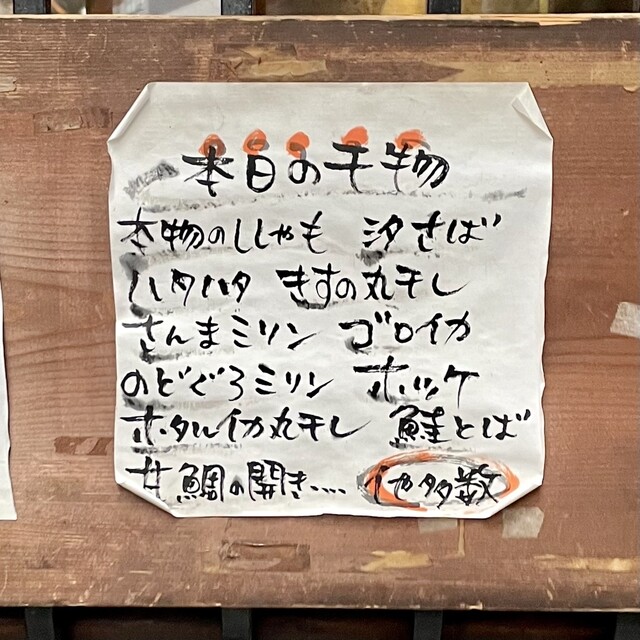 本日の干物
本物のししゃも 汐さば
ハタハタ きすの丸干し
さんまミリン ゴロイカ
のどぐろミリン ホッケ
ホタルイカ丸干し 鮭とば
サ鯛の開き.... 他多数